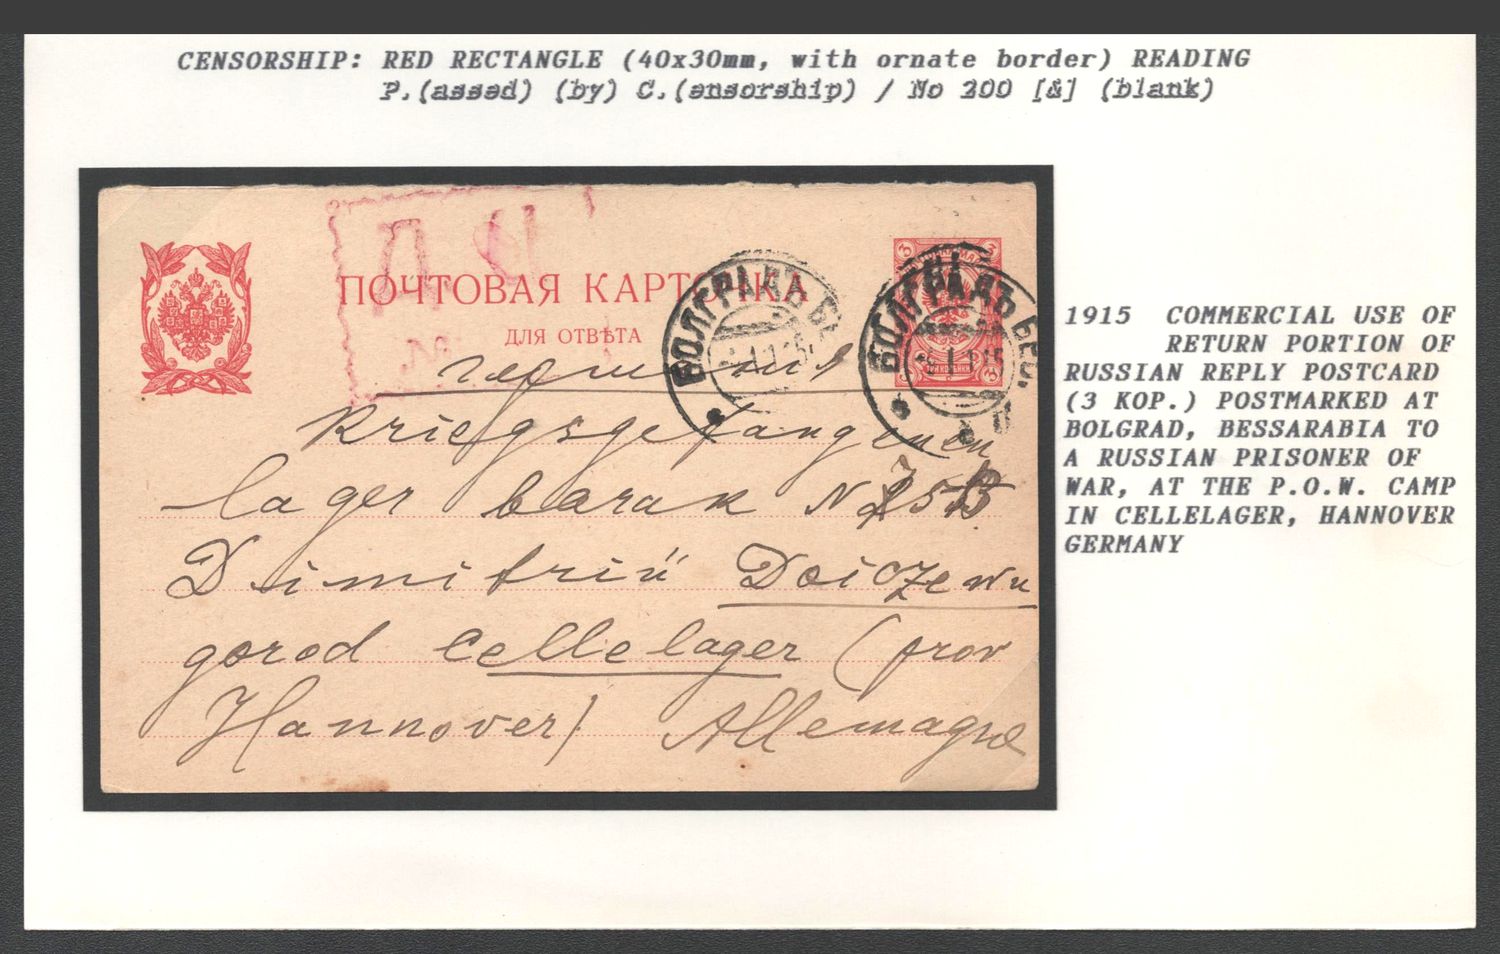 CENSORSHIP: RED RECTANGLE (40x30mm, with ornate border) READING
P.(assed) (by) C.(ensorship) / No 200 [&] (blank)
Д Ц
№
ПОЧТОВАЯ КАРТОЧКА
ДЛЯ ОТВѢТА
БОЛГРАДЪ БЕ
БОЛГРАДЪ БЕС.
Kriegsgefangenen
lager barak N
Dimitrii Doiczewu
gorod Cellelager (prov
Hannover) Allemagne
1915 COMMERCIAL USE OF
RETURN PORTION OF
RUSSIAN REPLY POSTCARD
(3 KOP.) POSTMARKED AT
BOLGRAD, BESSARABIA TO
A RUSSIAN PRISONER OF
WAR, AT THE P.O.W. CAMP
IN CELLELAGER, HANNOVER
GERMANY